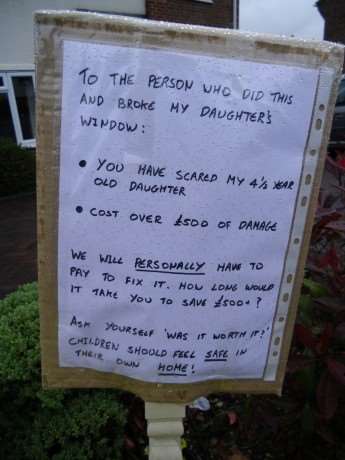 TO THE PERSON WHO DID THIS
AND BROKE MY DAUGHTER'S
WINDOW:
• YOU HAVE SCARED MY 4½ YEAR
OLD DAUGHTER
• COST OVER £500 OF DAMAGE
WE WILL PERSONALLY HAVE TO
PAY TO FIX IT. HOW LONG WOULD
IT TAKE YOU TO SAVE £500+?
ASK YOURSELF 'WAS IT WORTH IT?'
CHILDREN SHOULD FEEL SAFE IN
THEIR OWN HOME!